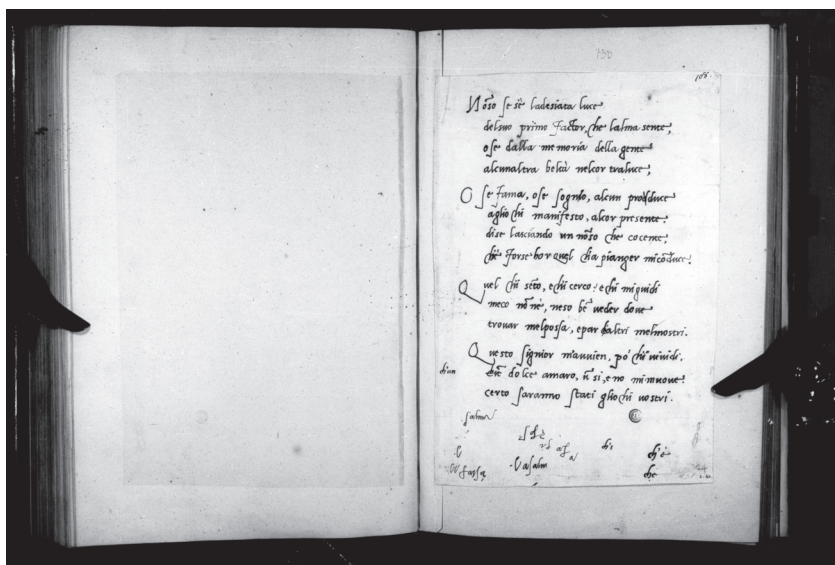 130
108.
Nõso se s'è ladesiata luce
delsuo primo Factor, che lalma sente,
o se dalla memoria della gente
alcunaltra beltà nelcor traluce;
O se fama, o se sognio, alcun prodduce
aglio chi manifesto, alcor presente.
dise lasciando un nõso che cocente,
che Forse hor quel cha pianger micõduce.
Quel chi sẽto, e chi cerco: e chi miguidi
meco nõ nè, neso bẽ veder dove
trovar melpossa, e par caltri melmostri.
Questo signior mavvien, po' chi vividi.
chun
dolce amaro, ũ si, e no mimuove:
certo saranno stati gliochi vostri.
salmo
che
che